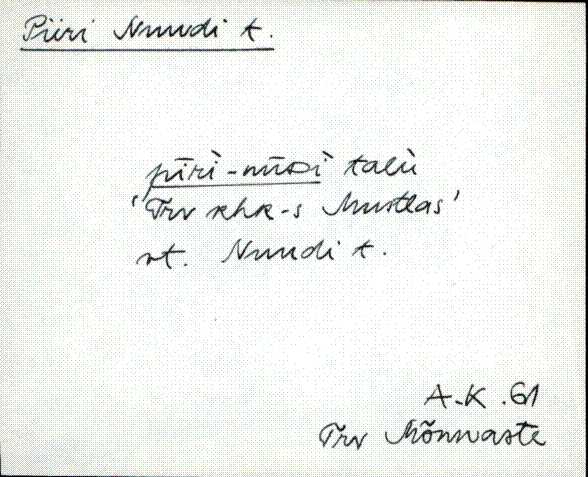 Piiri Nuudi t.
pīrì-nūᴅì talù
'Trv khk-s Mustlas'
vt. Nuudi t.
A.K. 61
Trv Mõnnaste